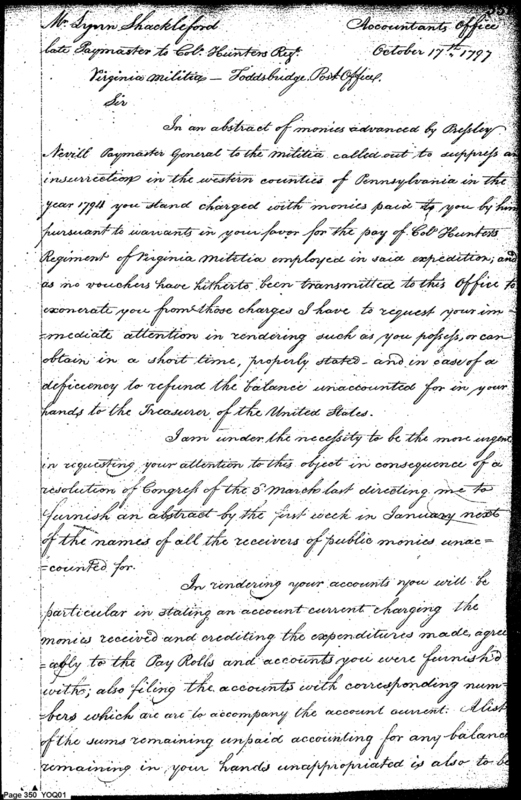 Mr. Lynn Shackleford Accountants Office
late Paymaster to Colo. Hunters Regt. October 17th. 1797
Virginia Militia — Toddsbridge, Post Office.
Sir
In an abstract of monies advanced by Presley
Nevill Paymaster General to the militia called out to suppress an
insurrection in the western counties of Pennsylvania in the
year 1794 you stand charged with monies paid to you by him
pursuant to warrants in your favor for the pay of Colo. Hunters
Regiment of Virginia Militia employed in said expedition; and
as no vouchers have hitherto been transmitted to this Office to
exonerate you from those charges I have to request your im=
=mediate attention in rendering such as you possess, or can
obtain in a short time, properly stated and in case of a
deficiency to refund the balance unaccounted for in your
hands to the Treasurer of the United States.
I am under the necessity to be the more urgent
in requesting your attention to this object in consequence of a
resolution of Congress of the 3d March last directing me to
furnish an abstract by the first week in January next
of the names of all the receivers of public monies unac=
=counted for.
In rendering your accounts you will be
particular in stating an account current charging the
monies received and crediting the expenditures made, agree
=ably to the Pay Rolls and accounts you were furnish'd
with; also filing the accounts with corresponding num=
=bers which are are to accompany the account current. A list
of the sums remaining unpaid accounting for any balance
remaining in your hands unappropriated is also to be
Page 350 YOQ01